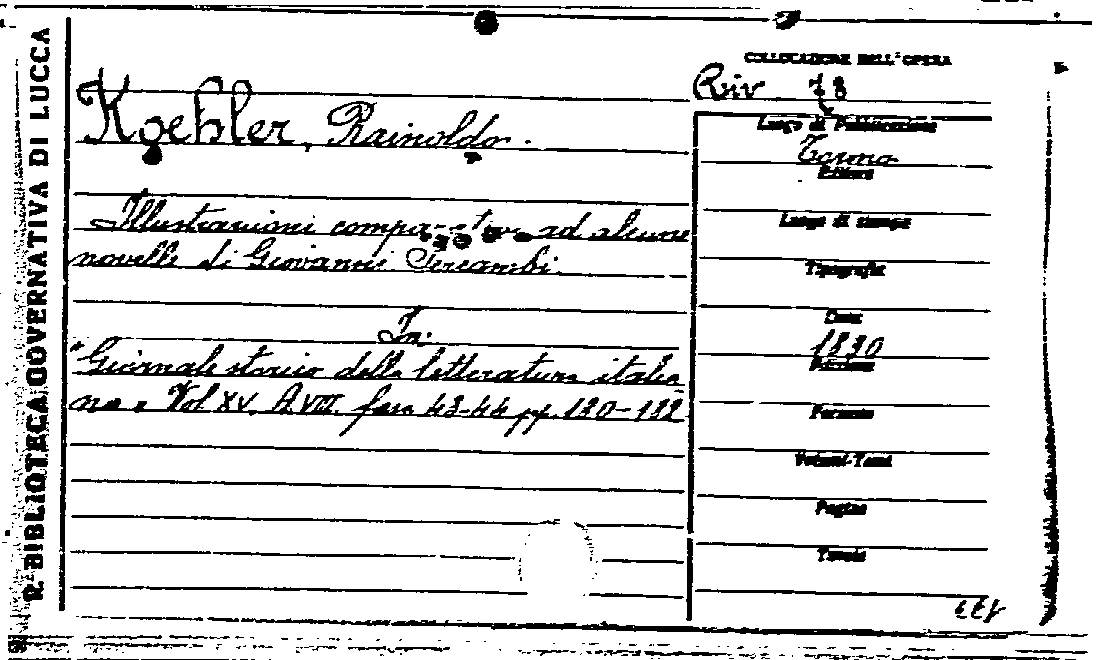 R. BIBLIOTECA GOVERNATIVA DI LUCCA
COLLOCAZIONE DELL'OPERA
Riv 78
Koehler, Rainoldo.
Illustrazioni comparative ad alcune
novelle di Giovanni Sercambi.
In:
"Giornale storico della letteratura italia
na" Vol XV. A. VIII. fasc 43-44 pp. 180-182
Luogo di Pubblicazione
Torino
Editore
Luogo di stampa
Tipografia
Data
1890
Edizione
Formato
Volumi-Tomi
Pagine
Tavole